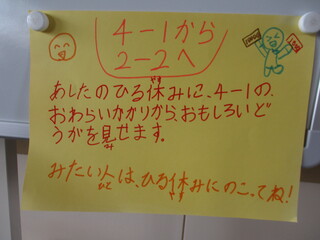 4-1から
2-2へ
あしたのひる休みに、4-1の、
やす
おわらいかかりから、おもしろいど
うがを見せます。
み
みたい人は、ひる休みにのこってね!
ひと
やす